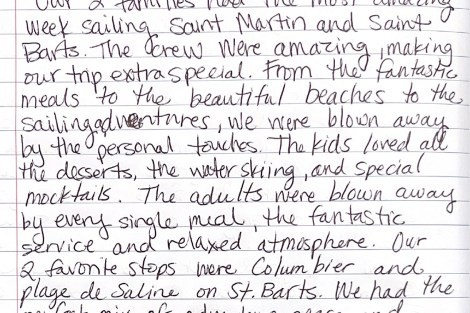 Our 2 families had the most amazing
week sailing Saint Martin and Saint
Barts. The crew were amazing, making
our trip extra special. From the fantastic
meals to the beautiful beaches to the
sailing adventures, we were blown away
by the personal touches. The kids loved all
the desserts, the water skiing, and special
mocktails. The adults were blown away
by every single meal, the fantastic
service and relaxed atmosphere. Our
2 favorite stops were Columbier and
plage de Saline on St. Barts. We had the